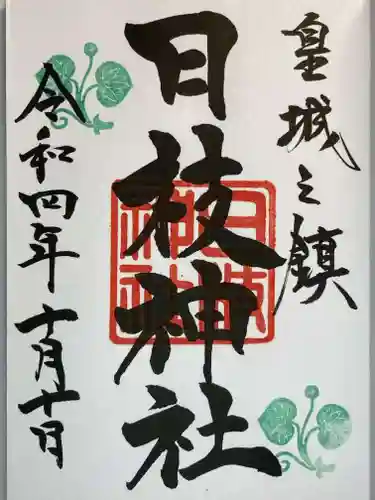 皇城之鎮
日枝神社
令和四年 十月十日
日枝
神社